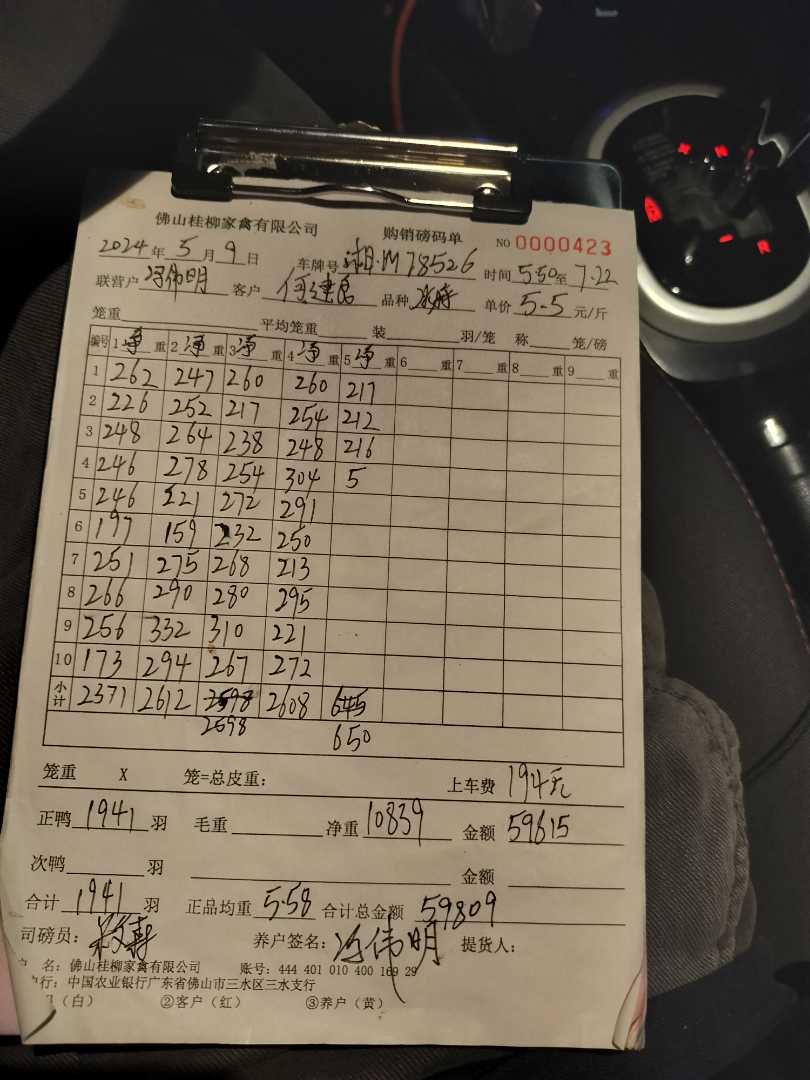 佛山桂柳家禽有限公司 购销磅码单 NO 0000423
2024年 5月 9日 车牌号 湘·M78526 时间 5:50 至 7:22
联营户 冯伟明 客户 何建良 品种 单价 5-5 元/斤
笼重 平均笼重 装 羽/笼 称 笼/磅
编号 1 净 重 2 净 重 3 净 重 4 净 重 5 净 6 重 7 重 8 重 9 重
1 262 247 260 260 217
2 226 252 217 254 212
3 248 264 238 248 216
4 246 278 254 304 5
5 246 221 272 291
6 197 159 232 250
7 251 275 268 213
8 266 290 280 295
9 256 332 310 221
10 173 294 267 272
小计 2371 2612 2598 2608 645
2598 650
笼重 X 笼=总皮重: 上车费 194元
正鸭 1941 羽 毛重 净重 10839 金额 59615
次鸭 羽 金额
合计 1941 羽 正品均重 5.58 合计总金额 59809
司磅员: 养户签名: 冯伟明 提货人:
名: 佛山桂柳家禽有限公司 账号: 444 401 010 400 169 29
行: 中国农业银行广东省佛山市三水区三水支行
(白) ②客户(红) ③养户(黄)